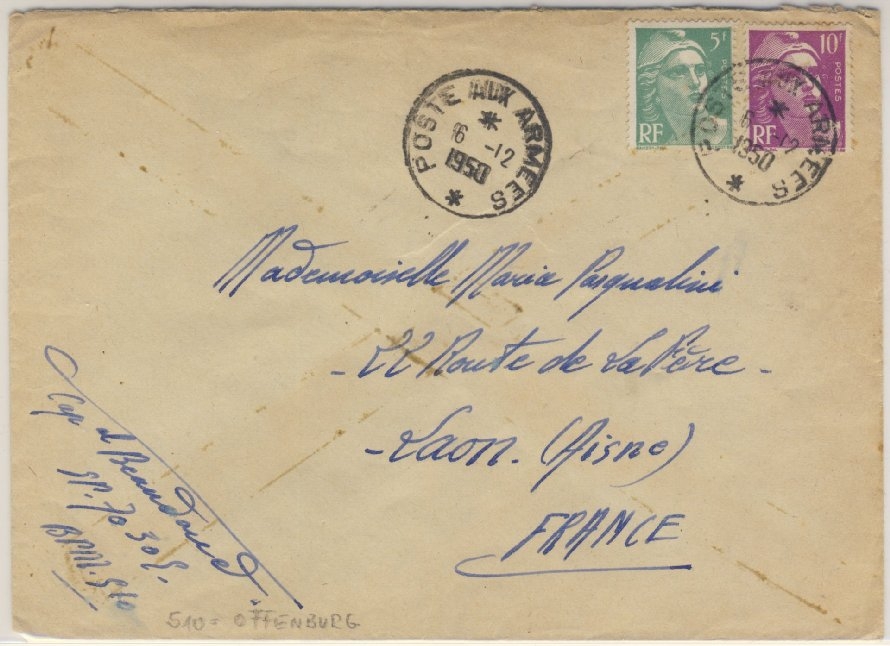 5F
POSTES
RF
10F
POSTES
RF
POSTE AUX ARMEES
16 -12
1950
POSTE AUX ARMEES
16 -12
1950
Mademoiselle Maria Pasqualini
- 22 Route de La Fère -
- Laon. (Aisne)
FRANCE
Cap
SP. 70 309.
BPM. 510
510 = OFFENBURG